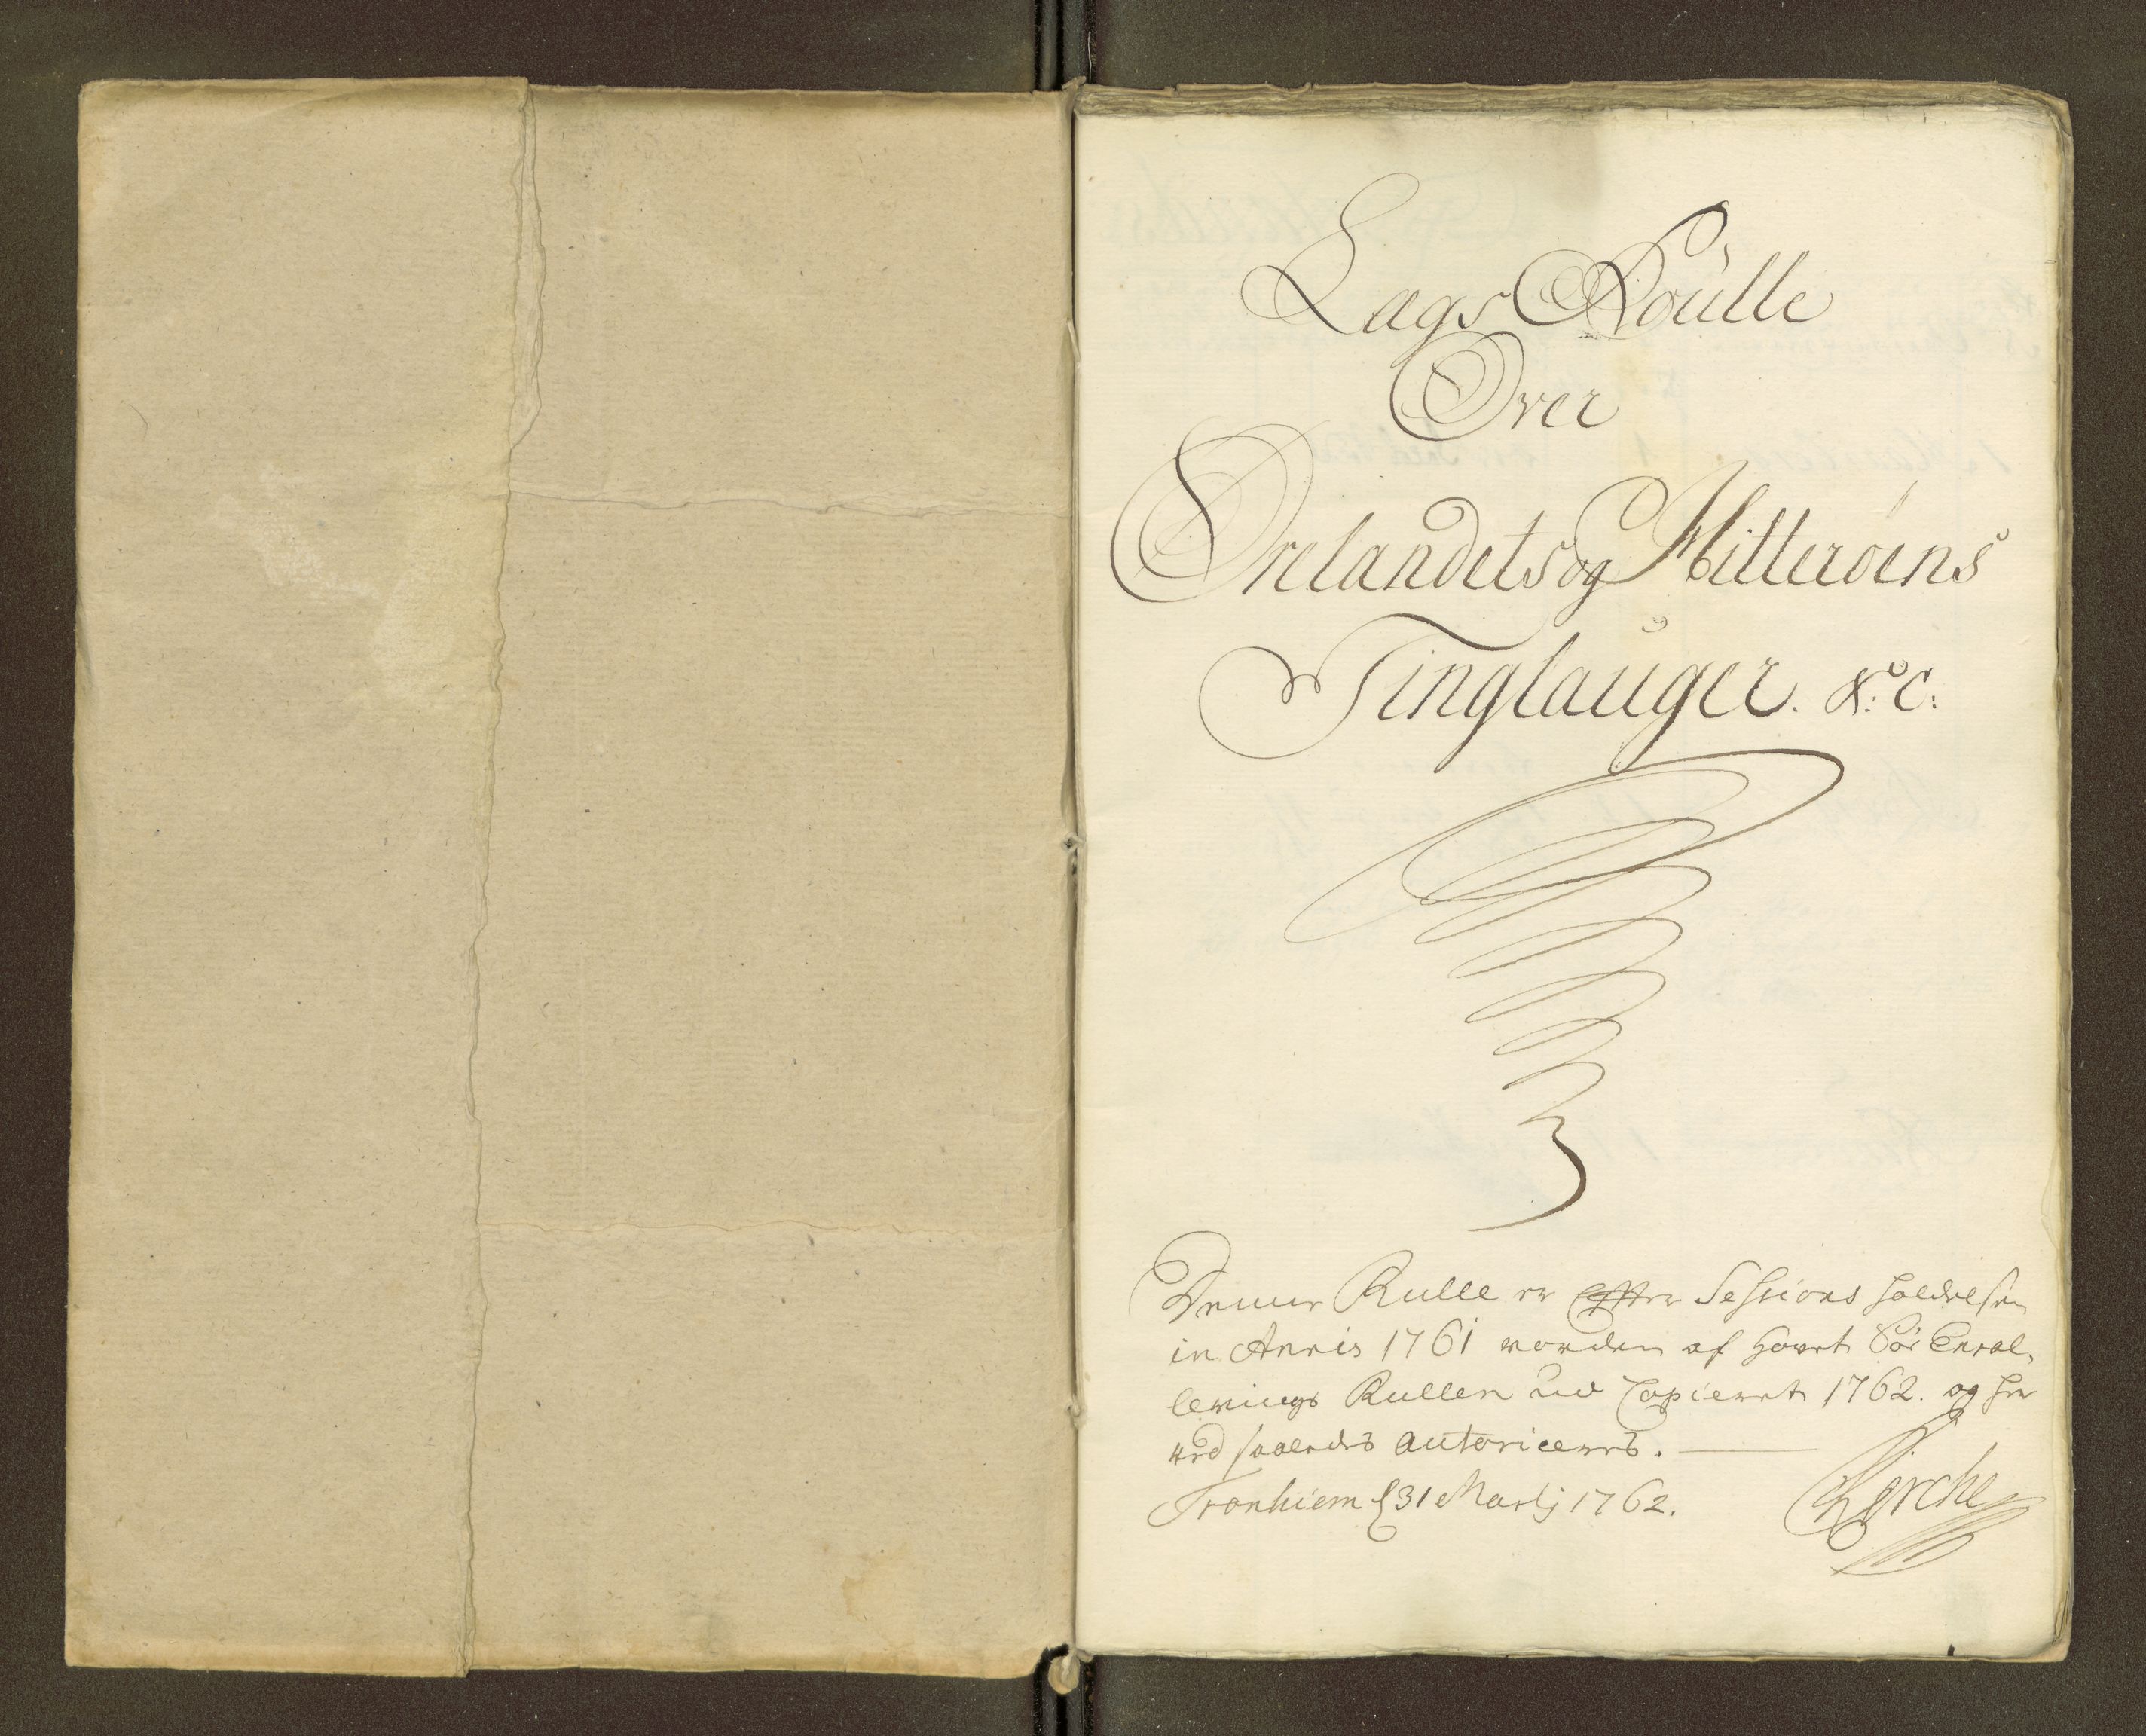 Lags Roulle
Over
Ørelandets og Hitterøens
Tinglauger. &c:
Denne Rulle er effter Sessions holdelsen
in Annis 1761 worden af Hovet Søe Enrol-
lerings Rullen ud Copieret 1762. og her
ved saaledes autoriceres.
Tronhiem d 31 Martj 1762.
Lerche